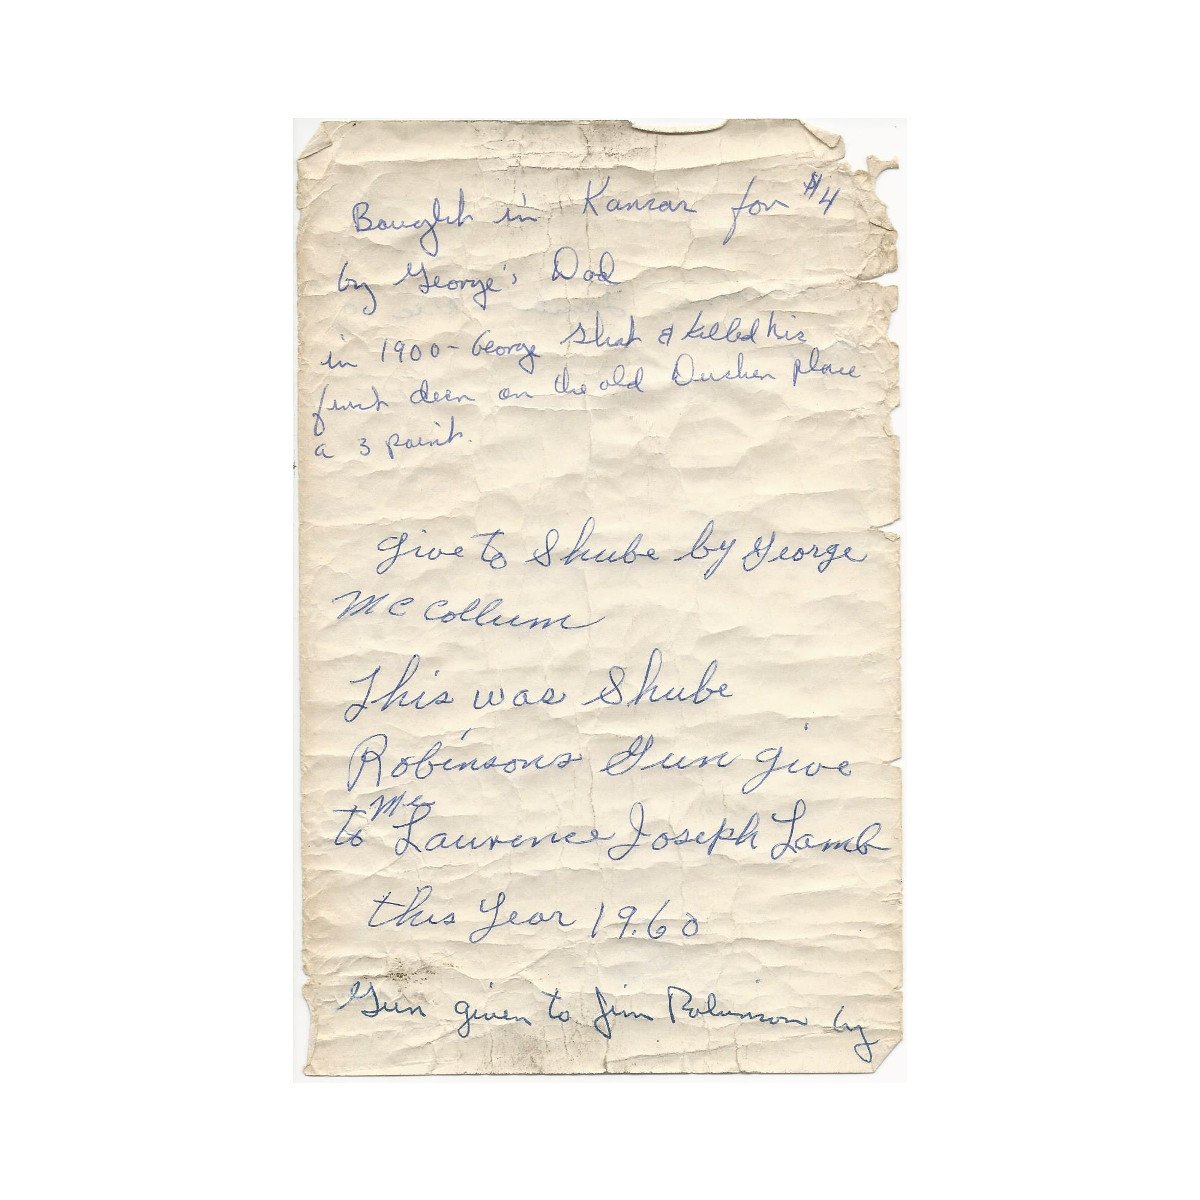 Bought in Kansas for $4
by George's Dad
in 1900 - George Shot & killed his
first deer on the old place
a 3 point.
give to Shube by George
McCollum
This was Shube
Robinsons Gun give
to Mc Laurence Joseph Lamb
this Year 19.60
Gun given to Jim Robinson by